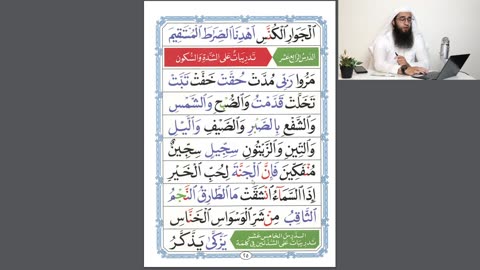 ٱلْجَوَارِ ٱلْكُنَّسِ ٱهْدِنَا ٱلصِّرَٰطَ ٱلْمُسْتَقِيمَ
الدرس الرابع عشر تدريبات على الشدة والسكون
مَرُّوا۟ رَبِّى مُدَّتْ حُقَّتْ خَفَّتْ تَبَّتْ
تَخَلَّتْ قَدَّمْتُ وَٱلصُّبْحِ وَٱلشَّمْسِ
وَٱلشَّفْعِ بِٱلصَّبْرِ وَٱلصَّيْفِ وَٱلَّيْلِ
وَٱلتِّينِ وَٱلزَّيْتُونِ سِجِّيلٍ سِجِّينٌ
مُنفَكِّينَ فَإِنَّ ٱلْجَنَّةَ لِحُبِّ ٱلْخَيْرِ
إِذَا ٱلسَّمَآءُ ٱنشَقَّتْ مَا ٱلطَّارِقُ ٱلنَّجْمُ
ٱلثَّاقِبُ مِن شَرِّ ٱلْوَسْوَاسِ ٱلْخَنَّاسِ
الدرس الخامس عشر
تدريبات على الشدتين في كلمة
يَزَّكَّىٰ يَذَّكَّرُ
٢٥